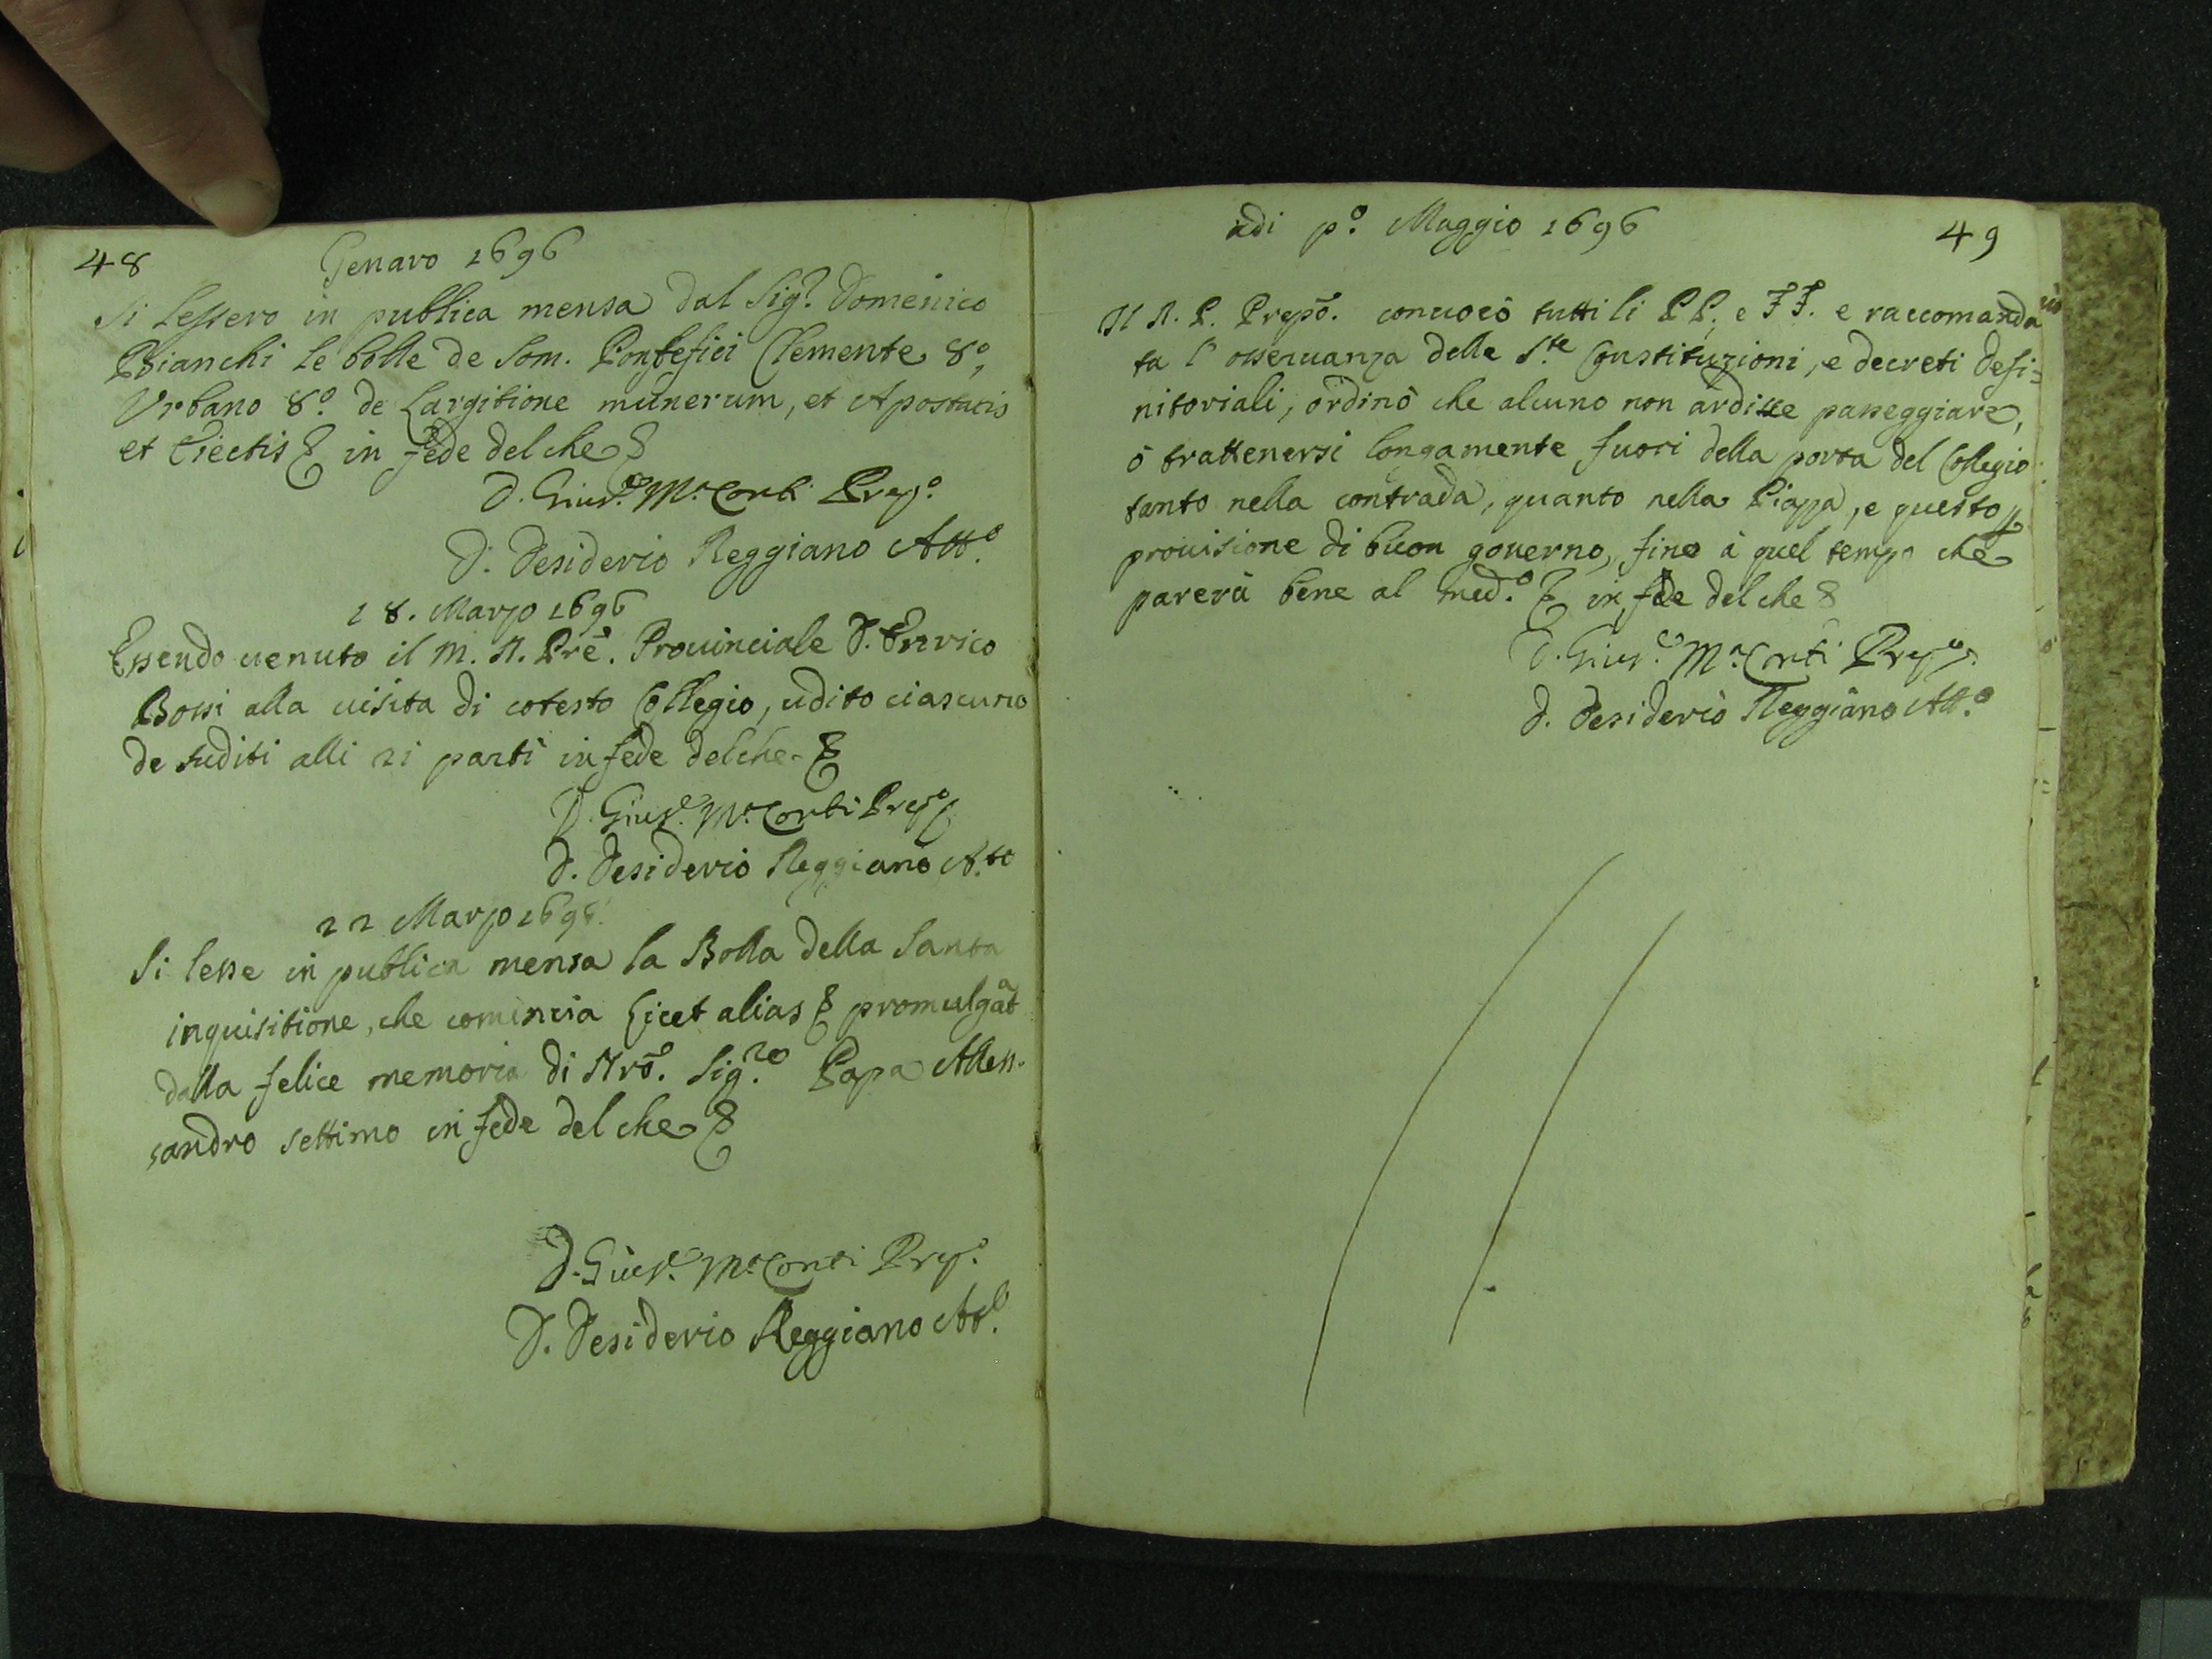 48
Genaro 1696
Si lessero in publica mensa dal Sig.r Domenico
Bianchi le bolle de Som. Pontefici Clemente 8.o,
Urbano 8.o de Largitione munerum, et Apostatis
et Eiectis & in fede del che &
D. Gius.e M.a Conti Prep.o
D. Desiderio Reggiano Att.o
18. Marzo 1696
Essendo venuto il M. R. Pre. Provinciale D.
Bossi alla visita di cotesto Collegio, udito ciascuno
de suditi alli 21 partì in fede del che &
D. Gius.e M.a Conti Prep.o
D. Desiderio Reggiano Att.o
22 Marzo 1696.
Si lesse in publica mensa la Bolla della Santa
inquisitione, che comincia Licet alias & promulgata
dalla felice memoria di Nro. Sig.re Papa Alles-
sandro settimo in fede del che &
D. Gius.e M.a Conti Prep.o
D. Desiderio Reggiano Att.o
49
adi p.o Maggio 1696
Il R. P. Prepo. convocò tutti li PP. e FF. e raccomanda
ta l'osservanza delle S.te Constituzioni, e decreti defi=
nitoriali, ordinò che alcuno non ardisse passeggiare,
ò trattenersi longamente fuori della porta del Collegio
tanto nella contrada, quanto nella Piazza, e questo p
provisione di buon governo, fino à quel tempo che
parerà bene al med.o & in fede del che &
D. Gius.e M.a Conti Prep.o
D. Desiderio Reggiano Att.o